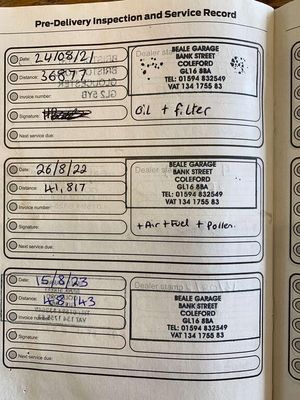 Pre-Delivery Inspection and Service Record
Date: 24/08/21
Distance: 36877
Invoice number:
Signature:
Next service due:
Dealer stamp
BEALE GARAGE
BANK STREET
COLEFORD
GL16 8BA
TEL: 01594 832549
VAT 134 1755 83
Oil + filter
Date: 26/8/22
Distance: 41,817
Invoice number:
Signature:
Next service due:
Dealer stamp
BEALE GARAGE
BANK STREET
COLEFORD
GL16 8BA
TEL: 01594 832549
VAT 134 1755 83
+ Air + Fuel + Pollen
Date: 15/8/23
Distance: 48,143
Invoice number:
Signature:
Next service due:
Dealer stamp
BEALE GARAGE
BANK STREET
COLEFORD
GL16 8BA
TEL: 01594 832549
VAT 134 1755 83